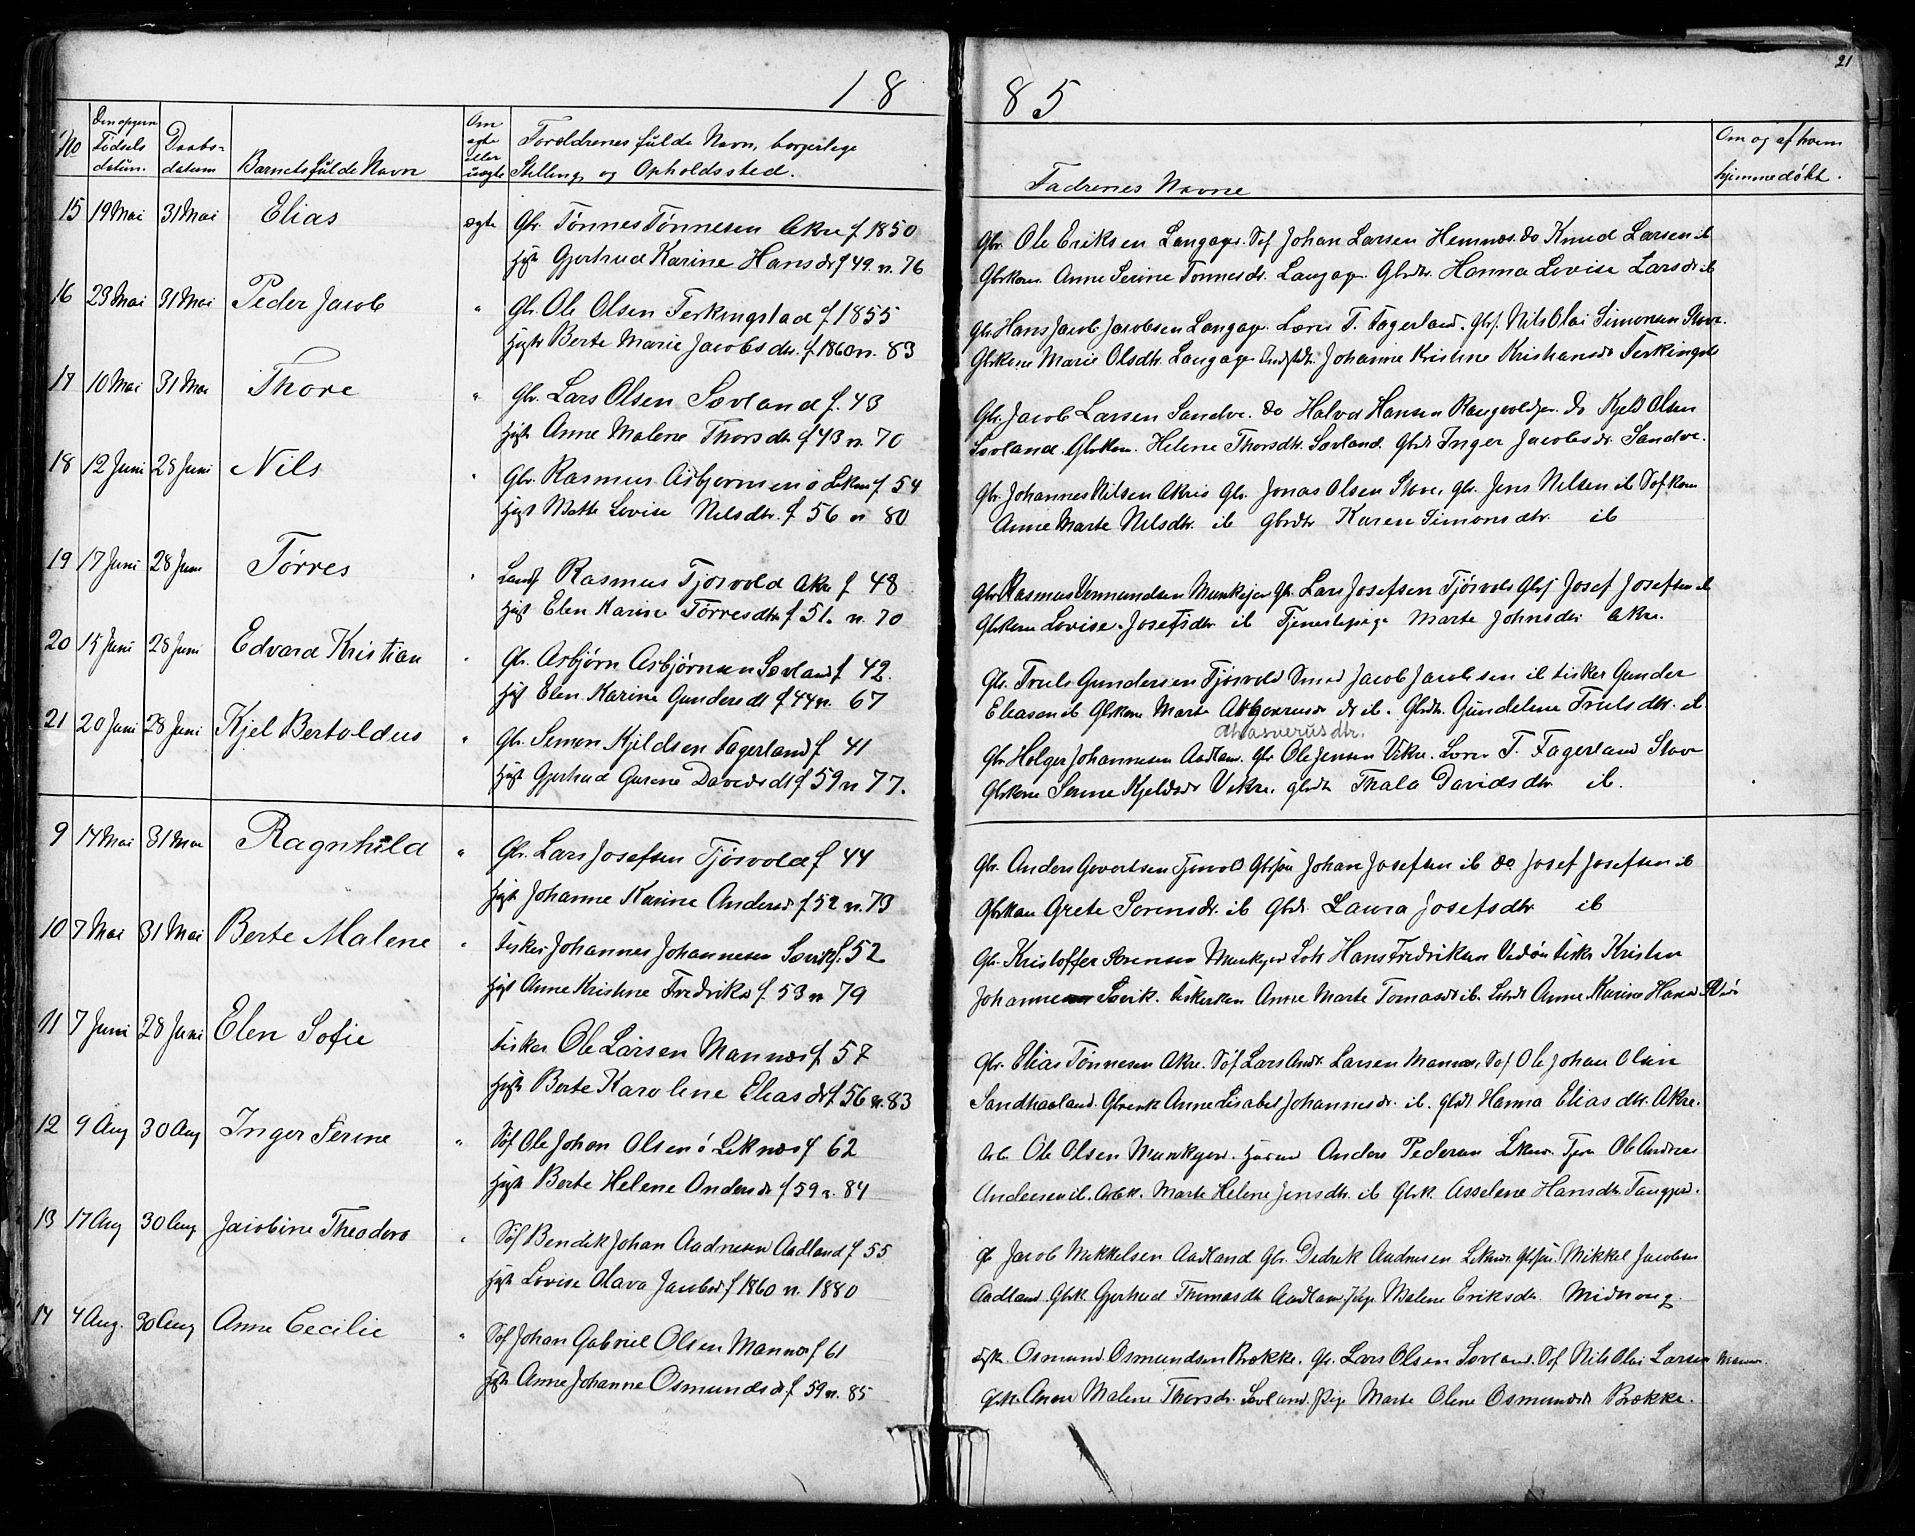 21
18 85
No
Den opgivne Fødsels datum.
Daabs- datum
Barnets fulde Navn
Om ægte eller uægte
Forældrenes fulde Navn, borgerlige Stilling og Opholdssted.
Fadrenes Navne
Om og af hvem hjemmedøbt.
15 19 Mai 31 Mai Elias ægte Gbr. Tønnes Tønnesen Akre f 1850
Hust Gjertrud Karine Hansdr f 49. n. 76
Gbr. Ole Eriksen Langager. Søf Johan Larsen Hemnes. do Knud Larsen ib
Gbrkone Anne Serine Tønnesdr. Langager Gbrdtr. Hanna Lovise Larsdr ib
16 23 Mai 31 Mai Peder Jacob " Gbr. Ole Olsen Ferkingstad f 1855
Hust Berte Marie Jacobsdr. f. 1860 n. 83
Gbr Hans Jacob Jacobsen Langager. Lærer T. Fagerland. Gbs. Nils Olai Simonsen Stove.
Gbrkone Marie Olsdtr Langager Johanne Kristine Kristiansdr Ferkingst
17 10 Mai 31 Mai Thore " Gbr. Lars Olsen Sævland f. 43
Hust Anne Malene Thorsdr. f 43 n. 70
Gbr. Jacob Larsen Sandve. do Halvor Hansen do Kjeld Olsen
Sævland. Gbrkone. Helene Thorsdtr. Sævland. Gbrdt Inger Jacobsdr Sandve.
18 12 Juni 28 Juni Nils " Gbr. Rasmus Asbjørnsen ø Leknes f 54
Hust Mette Lovise Nilsdtr. f 56 n 80
Gbr. Johannes Nilsen Akre Gbr. Jonas Olsen Stove, Gbr. Jens Nilsen ib Søfkone
Anne Marte Nilsdtr. ib Gbrdtr Karen Simonsdtr. ib
19 17 Juni 28 Juni Tørres " Landh Rasmus Tjøsvold Akre f 48
Hust Elen Karine Tørresdtr f 51. n. 70
Gbr Rasmus Vermundsen Munkejor Gbr. Lars Josefsen Tjøsvold Gbs Josef Josefsen ib
Gbrkone Lovise Josefsdtr ib Tjenestepige Marte Johnsdr Akre.
20 15 Juni 28 Juni Edvard Kristian " Gbr. Asbjørn Asbjørnsen Sævland f 42.
Hust Elen Karine Gundersdt f 44 n. 67
Gbr. Truls Gundersen Tjøsvold Smed Jacob Jacobsen ib Fisker Gunder
Eliasen ib Gbrkone Marte ib. Gbrdtr. Gundeline Trulsdtr. ib
Ahasverusdtr.
21 20 Juni 28 Juni Kjel Bertoldus " Gbr. Simon Kjeldsen Fagerland f 41
Hust Gjertrud Gurine Davidsdt f 59 n 77.
Gbr Holger Johannesen Aadland. Gbr Ole Jensen Vikre. Lærer T. Fagerland Stove
Gbrkone Serine Kjeldsdr Vikre. Gbrdtr Thala Davidsdtr ib.
9 14 Mai 31 Mai Ragnhild " Gbr. Lars Josefsen Tjøsvold f 44
Hust Johanne Karine Andersd f 52 n. 73
Gbr. Anders Govertsen Tjøsvold Gbrsøn Johan Josefsen ib do. Josef Josefsen ib
Gbrkone Grete Sørensdr. ib Gbrdt. Laura Josefsdtr ib
10 7 Mai 31 Mai Berte Malene " Fisker Johannes Johannesen Sævik f. 52
Hust Anne Kristine Fredriksd f. 53 n 79
Gbr. Kristoffer Sørensen Munkejord Lods Hans Fredriksen Vedøn Fisker Kristen
Johannesen Sævik. Fiskerkone Anne Marte Tomasdr ib. Anne Karine Hansd
11 7 Juni 28 Juni Elen Sofie Fisker Ole Larsen Mannes f 57
Hust Berte Karoline Eliasdr f 56 n. 83
Gbr. Elias Tønnesen Akre. Søf Lars Andr. Larsen Mannes, Søf Ole Johan Olsen
Sandhaaland. Gbrenk Anne Lisabet Johannesdr. ib. Gbrdt Hanna Eliasdtr. Akre.
12 9 Aug 30 Aug Inger Serine " Søf Ole Johan Olsen ø Leknes f 62
Hust Berte Helene Andersdr f 59 n. 84
Arb. Ole Olsen Munkejord. Huusm Anders Pedersen Leknes. Tjen Ole Andreas
Andersen ib. Arbk. Marte Helene Jensdtr. ib Gbrk. Asseline Hansdtr Tangjerd.
13 17 Aug 30 Aug Jacobine Theodora " Søf Bendik Johan Aadnesen Aadland f 55
Hust Lovise Olava Jacobsd f 1860 n. 1880
Gbr Jacob Mikkelsen Aadland Gbr. Didrik Andersen Leknes Gbrsøn. Mikkel Jacobsen
Aadland. Gbrk. Gjertrud Thomasdtr Aadland Pige Malene Eriksdtr. Midhoug.
14 4 Aug. 30 Aug Anne Cecilie " Søf Johan Gabriel Olsen Mannes f 61
Hust Anne Johanne Osmundsdr f 59 n. 85
Fisk. Osmund Osmundsen Brekke. Gbr. Lars Olsen Sævland. Søf Nils Olai Larsen Mannes.
Gbrk. Anne Malene Thorsdr. Sævland. Pige Marte Oline Osmundsdt Brekke.